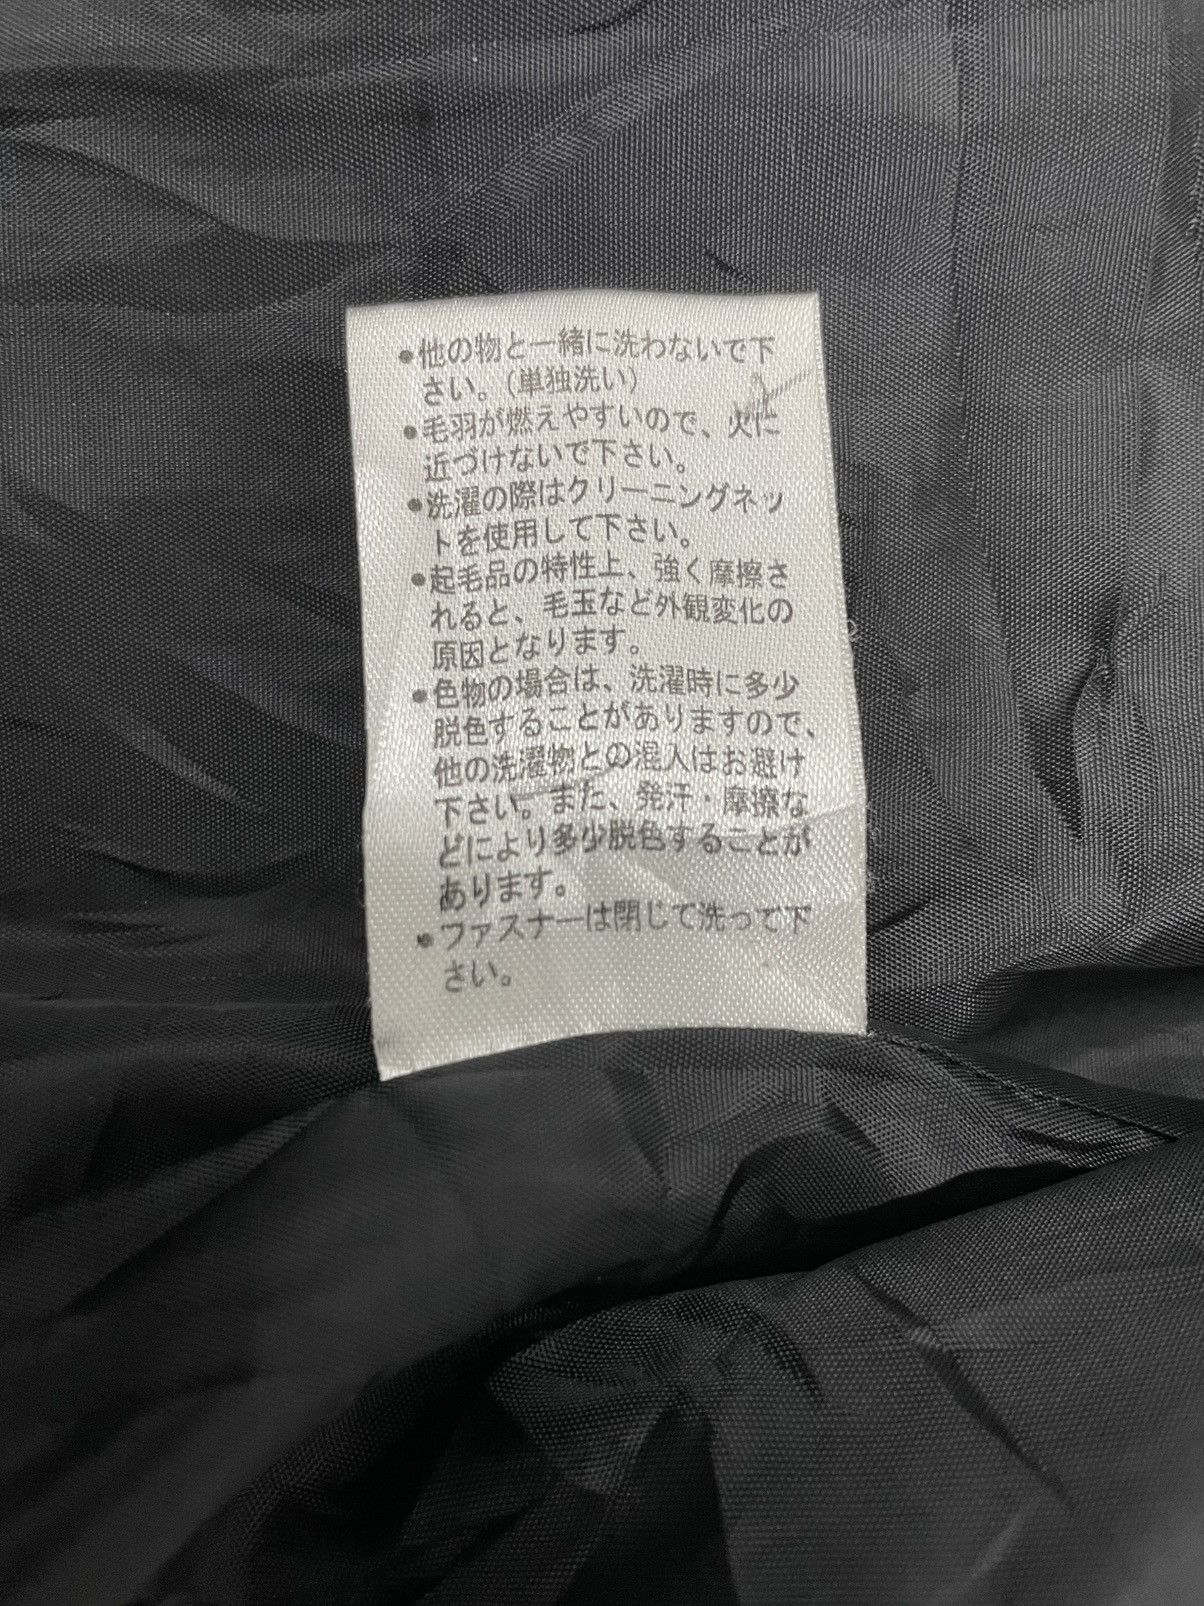 •他の物と一緒に洗わないで下
さい。(単独洗い)
•毛羽が燃えやすいので、火に
近づけないで下さい。
•洗濯の際はクリーニングネッ
トを使用して下さい。
•起毛品の特性上、強く摩擦さ
れると、毛玉など外観変化の
原因となります。
•色物の場合は、洗濯時に多少
脱色することがありますので、
他の洗濯物との混入はお避け
下さい。また、発汗・摩擦な
どにより多少脱色することが
あります。
•ファスナーは閉じて洗って下
さい。